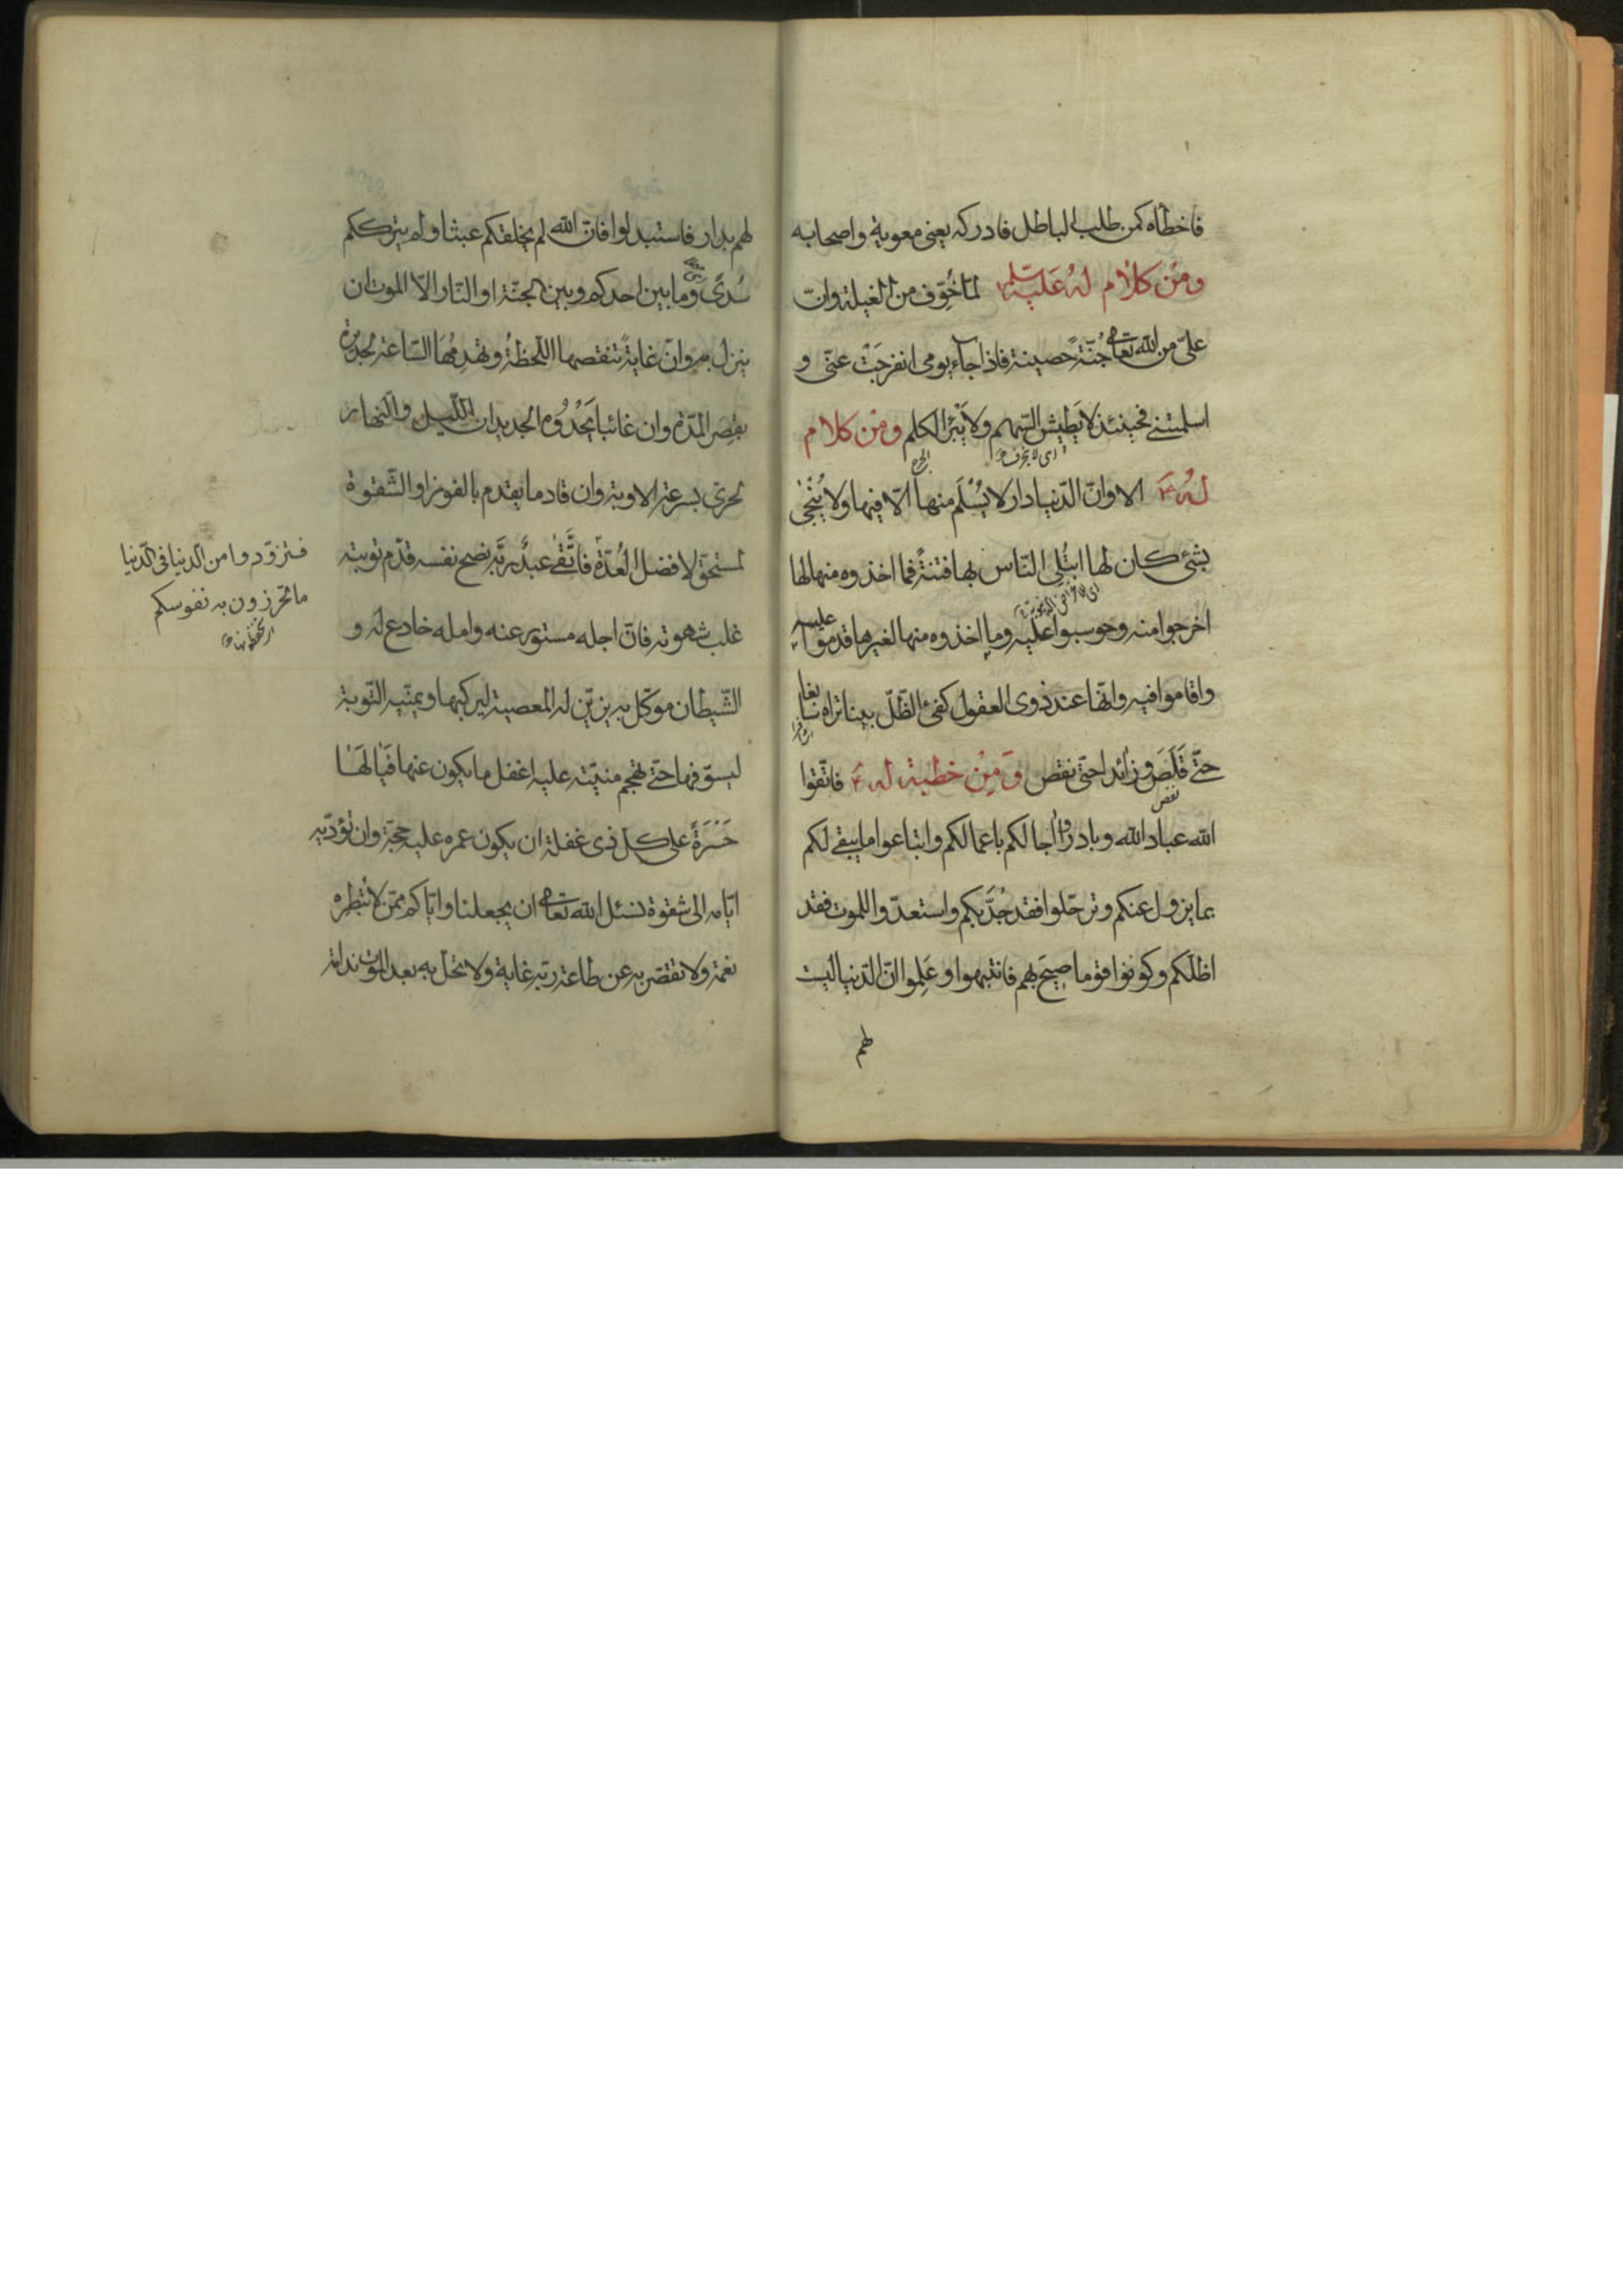 فاخطاه كمن طلب الباطل فادركه يعنى معوية واصحابه
ومن كلام له عليه السلم لما خُوّف من الغيلة وانّ
علىّ من الله تعالى جُنّة حصينة فاذا جاء يومى انفرجَتْ عنّى و
اسلمتنى فحينئذ لا يَطيش السّهم ولا يَبْرَأ الكلم ومن كلام
له ع الا وانّ الدّنيا دار لا يُسْلَم منها الّا فيها ولا يُنْجٰى
بشئ كان لها ابتُلى النّاس بها فتنةً فما اخذوه منها لها
اخرجوا منه وحوسبوا عليه وما اخذوه منها لغيرها قدموا عليه
واقاموا فيه وانّها عند ذوى العقول كفئ الظّلّ بينا تراه سابغا
حتّى قَلَصَ وزائدا حتى نقص ومِنْ خطبة له ع فاتّقوا
نقص
الله عباد الله وبادروا اجالكم باعمالكم وابتاعوا ما يبقى لكم
بما يزول عنكم وترحّلوا فقد جُدَّ بكم واستعدّوا للموت فقد
اظلّكم وكونوا قوما صِيحَ بهم فانتبهوا وعَلِموا انّ الدّنيا ليست
لهم
لهم بدار فاستبدلوا فانّ الله لم يخلقكم عبثا ولم يترككم
سُدىً وما بين احدكم وبين الجنّة او النّار الّا الموت ان
ينزل به وانّ غايةً تنقصها اللّحظةُ وتهدِمُهَا السّاعة لجديرة
بقِصَر المدّة وان غائبا يَحْدُوه الجديدان اللّيل والنّهار
لحرىّ بسرعة الاوبة وان قادما يقدم بالفوز او الشّقوة
لمستحقّ لافضل العُدّة فاتَّقٰى عبدٌ ربَّه نصح نفسه قدّم توبته
غلب شهوته فانّ اجله مستور عنه وامله خادع له و
الشّيطان موكّل به يزيّن له المعصية ليركبها ويمنّيه التّوبة
ليسوّفها حتّى تهجم منيّته عليه اغفل ما يكون عنها فيٰا لهٰا
حَسْرَةً على كل ذى غفلة ان يكون عمره عليه حجّة وان تؤدّيه
ايّامه الى شقوة نسئل الله تعالى ان يجعلنا وايّاكم ممّن لا تُبْطِره
نعمة ولا تقصّر به عن طاعة ربّه غاية ولا تحلّ به بعد الموت ندامة
فتزوّدوا من الدنيا فى الدّنيا
ما تحرزون به نفوسكم